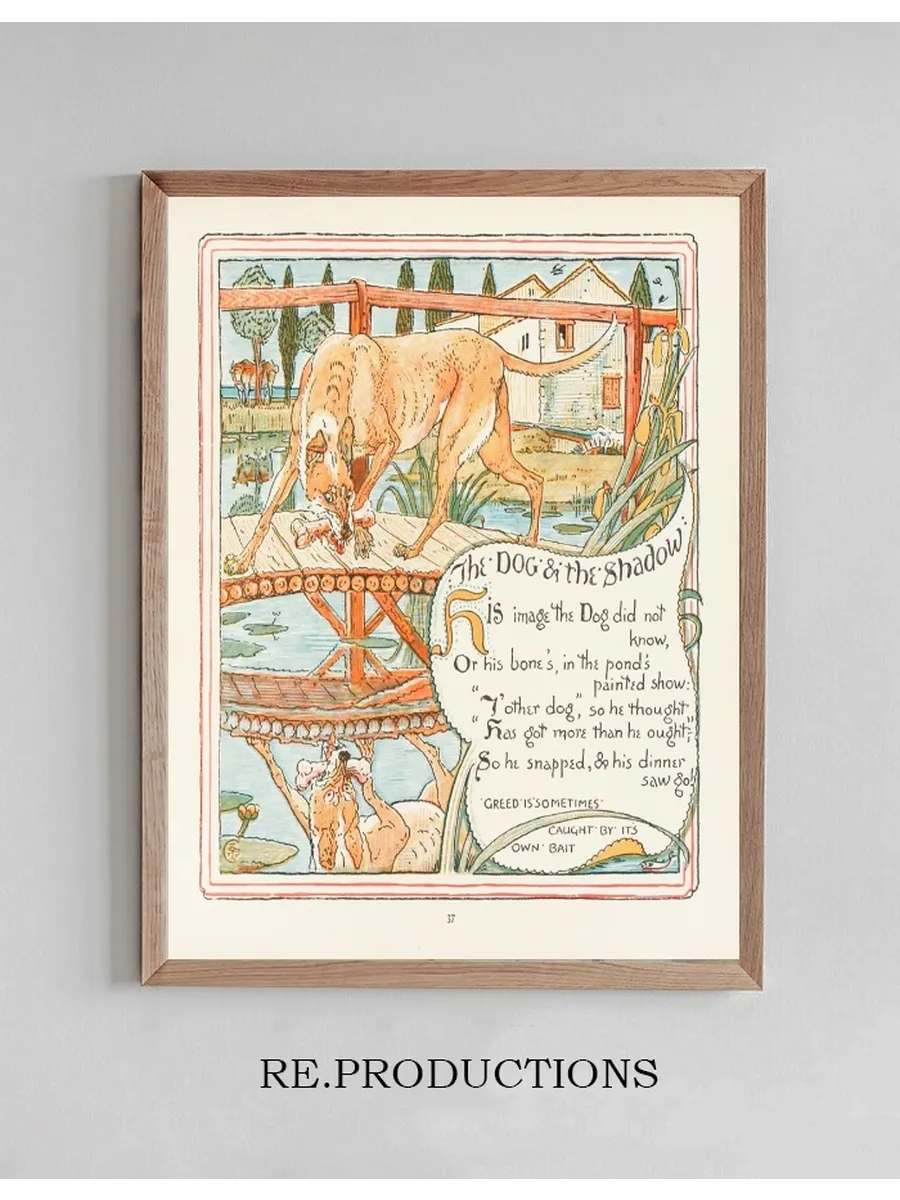 The·DOG·&·the·Shadow·
HIS image the Dog did not
know,
Or his bone's, in the pond's
painted show:
"T'other dog," so he thought
"Has got more than he ought;"
So he snapped, & his dinner
saw go!
·GREED·IS·SOMETIMES·
CAUGHT·BY·IT'S
OWN·BAIT
37
RE.PRODUCTIONS